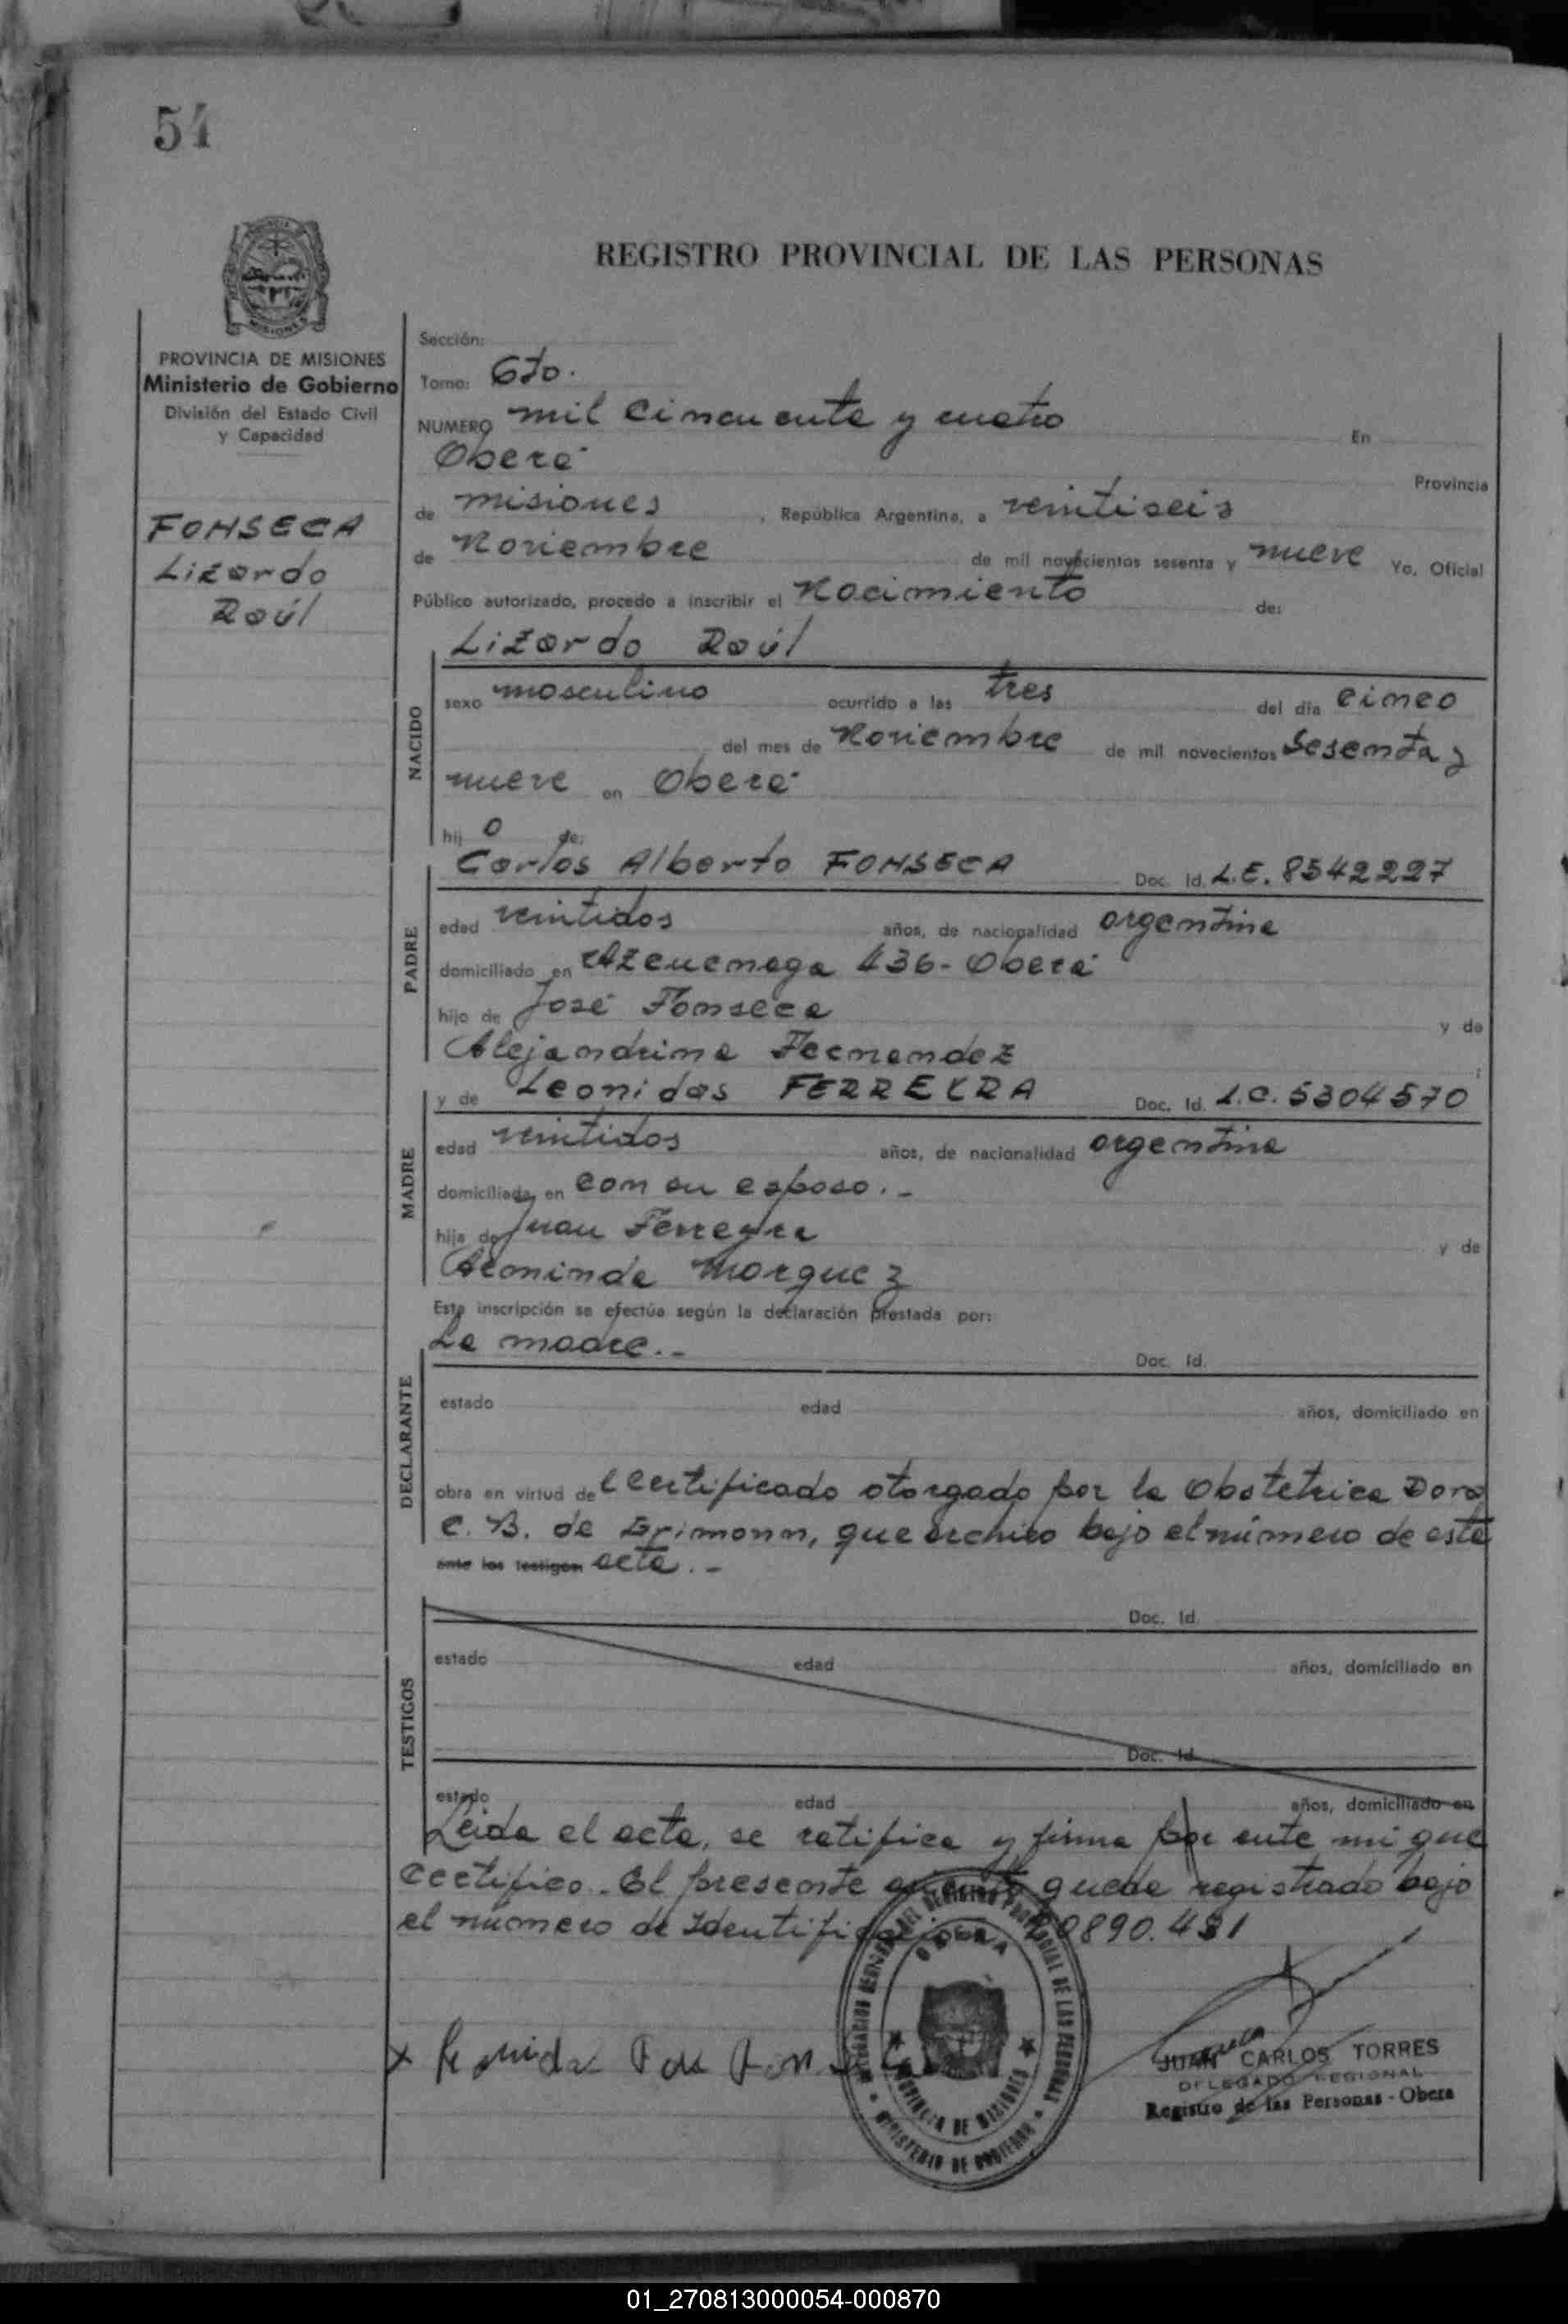 54
REGISTRO PROVINCIAL DE LAS PERSONAS
PROVINCIA DE MISIONES
Ministerio de Gobierno
División del Estado Civil
y Capacidad
FONSECA
Lizardo
Raúl
Sección:
Tomo: 6to.
NUMERO mil cincuenta y cuatro En
Oberá Provincia
de misiones, República Argentina, a veintiseis
de Noviembre de mil novecientos sesenta y nueve Yo, Oficial
Público autorizado, procedo a inscribir el Nacimiento de:
Lizardo Raúl
NACIDO
sexo masculino ocurrido a las tres del día cinco
del mes de Noviembre de mil novecientos Sesenta y
nueve en Oberá
hij o de:
Carlos Alberto FONSECA Doc. Id. L.E. 8542227
PADRE
edad veintidos años, de nacionalidad argentina
domiciliado en Azcuenaga 436- Oberá
hijo de José Fonseca y de
Alejandrina Fernandez
y de Leonidas FERREYRA Doc. Id. L.C. 5304570
MADRE
edad veintidos años, de nacionalidad argentina
domiciliada en con su esposo.-
hija de Juan Ferreyra y de
Morquez
Esta inscripción se efectúa según la declaración prestada por:
La madre.- Doc. Id.
DECLARANTE
estado edad años, domiciliado en
obra en virtud del certificado otorgado por la Obstetrica Dora
C. B. de Grimonn, que archivo bajo el número de esta
ante los testigos acta.-
Doc. Id.
TESTIGOS
estado edad años, domiciliado en
Doc. Id.
estado edad años, domiciliado en
Leida el acta, se ratifica y firma por ante mi que
certifico.- El presente queda registrado bajo
el número de Identificación 890.481
OBERA
PROVINCIA DE MISIONES
MINISTERIO DE GOBIERNO
JUAN CARLOS TORRES
DELEGADO REGIONAL
Registro de las Personas - Obera
01_270813000054-000870